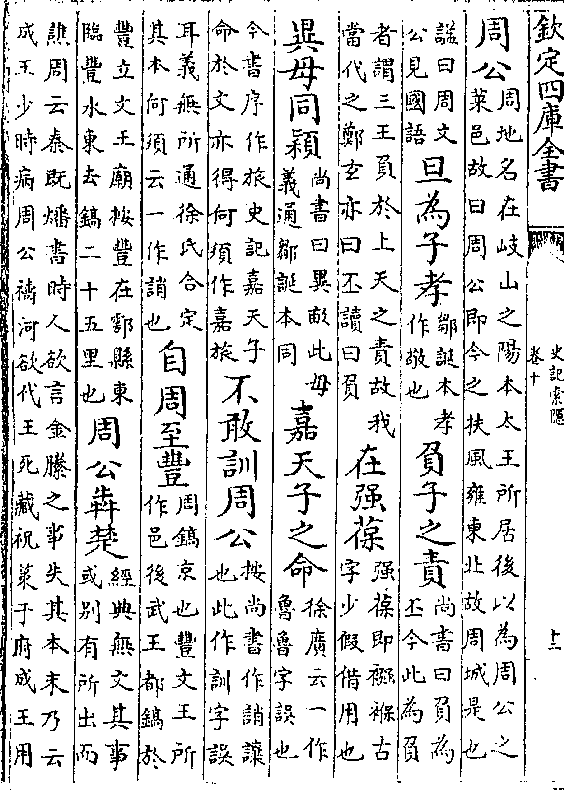 欽定四庫全書
史記索隱
卷十
十二
周公
周地名在岐山之陽本太王所居後以為周公之
萊邑故曰周公即今之扶風雍東北故周城是也
諡曰周文
公見國語
旦為子孝
鄒誕本孝
作敬也
負子之責
尚書曰負為
丕今此為負
者謂三王負於上天之責故我
當代之鄭玄亦曰丕讀曰負
在强葆
强葆即襁褓古
字少假借用也
異母同穎
尚書曰異畝此母
義通鄒誕本同
嘉天子之命
徐廣云一作
魯魯字誤也
今書序作旅史記嘉天子
命於文亦得何須作嘉旅
不敢訓周公
按尚書作誚讓
也此作訓字誤
耳義無所通徐氏合定
其本何須云一作誚也
自周至豐
周鎬京也豐文王所
作邑後武王都鎬於
豐立文王廟按豐在鄠縣東
臨豐水東去鎬二十五里也
周公犇楚
經典無文其事
或别有所出而
譙周云秦既燔書時人欲言金縢之事失其本末乃云
成王少時病周公禱河欲代王死藏祝䇿于府成王用